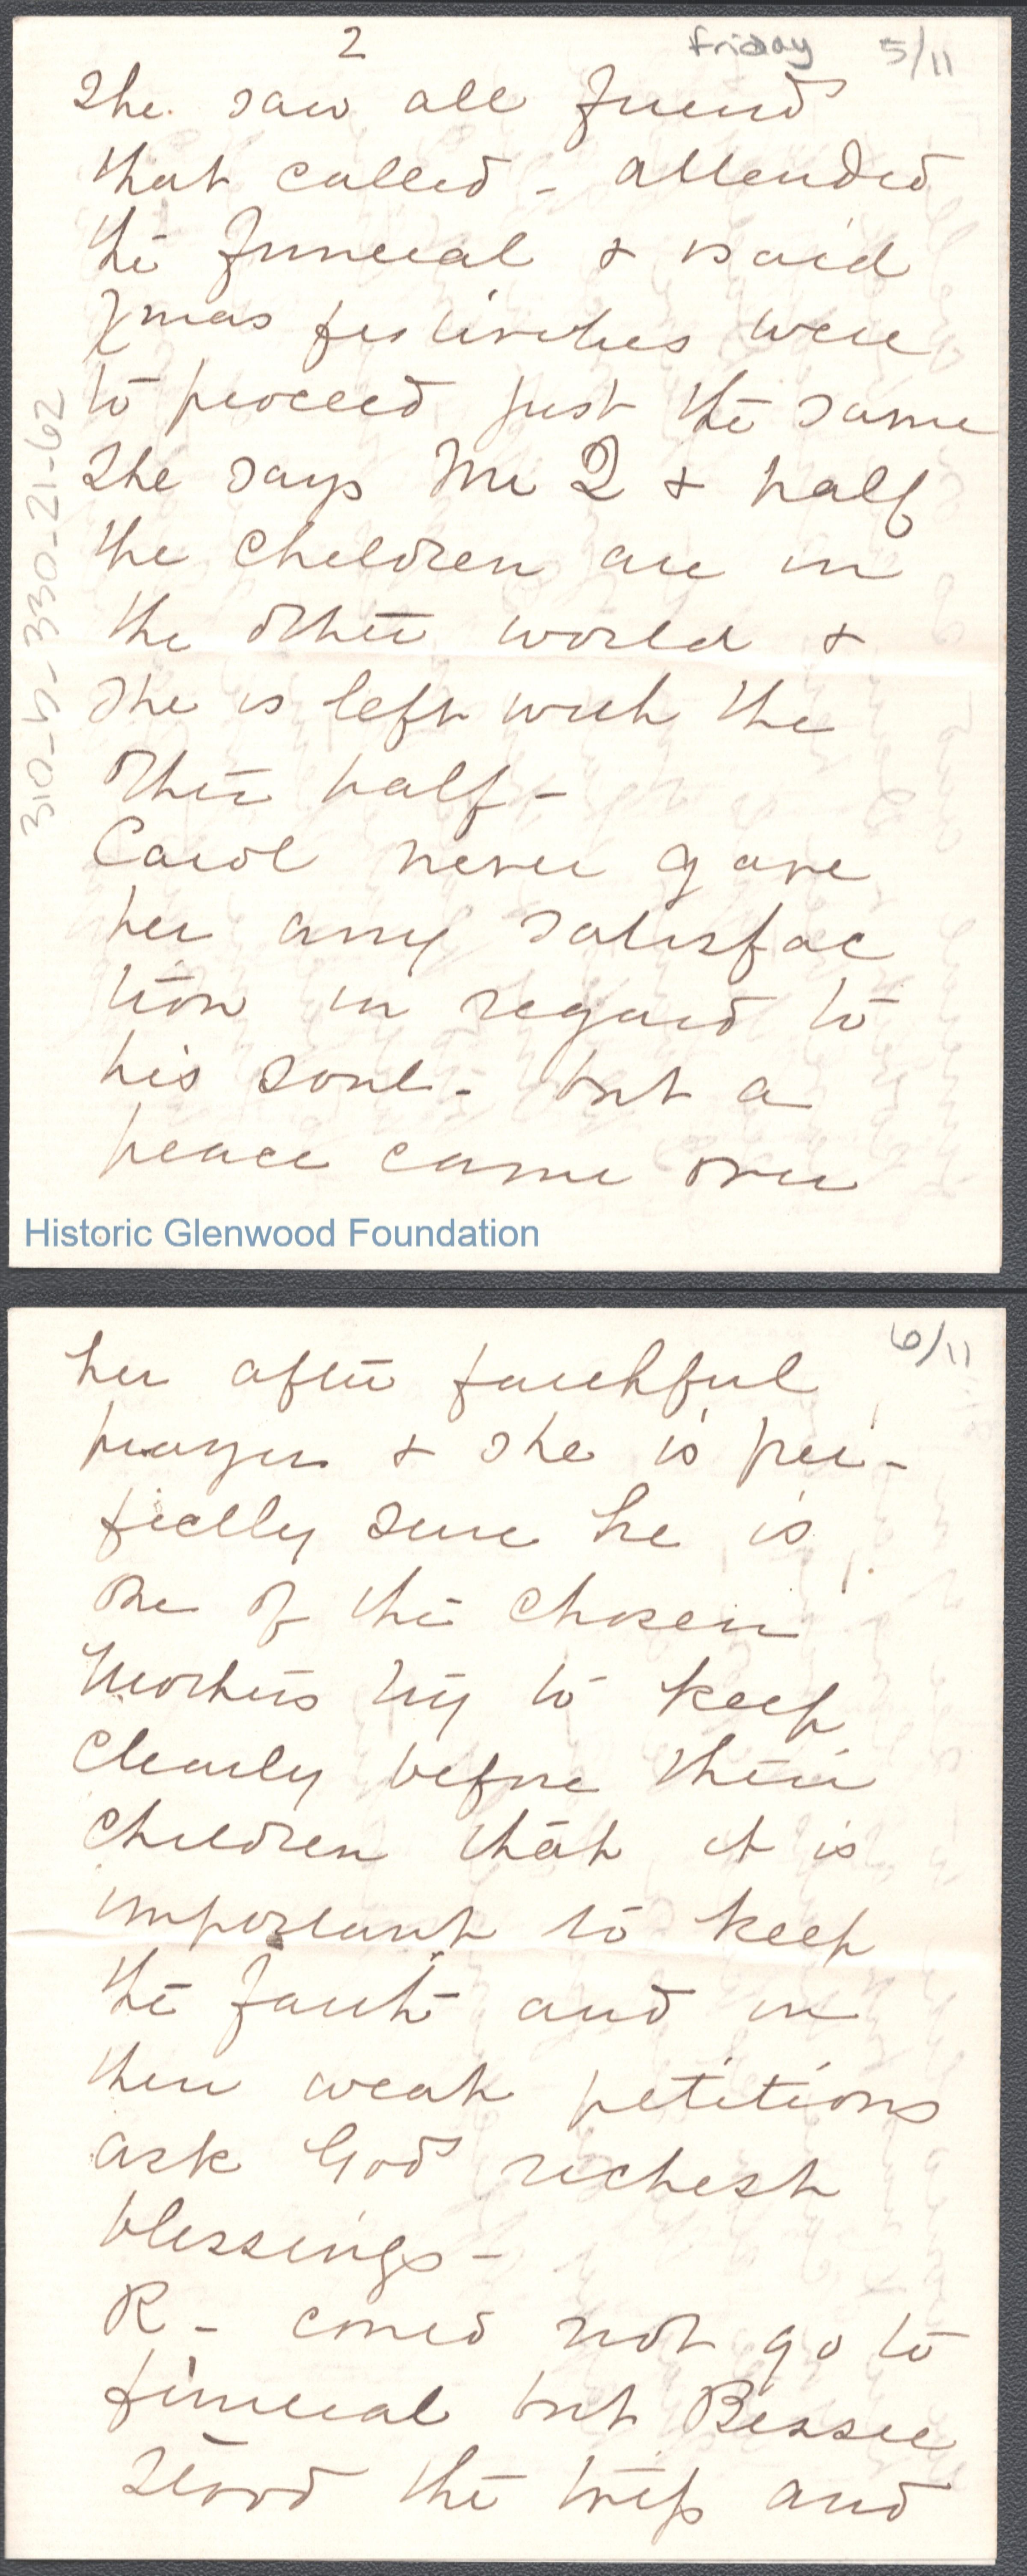 2
Friday 5/11
She saw all friends
that called - attended
the funeral & said
Xmas festivities were
to proceed just the same
She says Mr Q & half
the children are in
the other world &
she is left with the
other half -
Carol never gave
her any satisfac
tion in regard to
his soul - but a
peace came over
310-5-330-21-62
Historic Glenwood Foundation
6/11
her after faithful
prayer & she is per-
fectly sure he is
one of the chosen
Mothers try to keep
clearly before their
children that it is
important to keep
the faith and in
their weak petitions
ask Gods richest
blessings -
R - could not go to
funeral but Bessie
stood the trip and